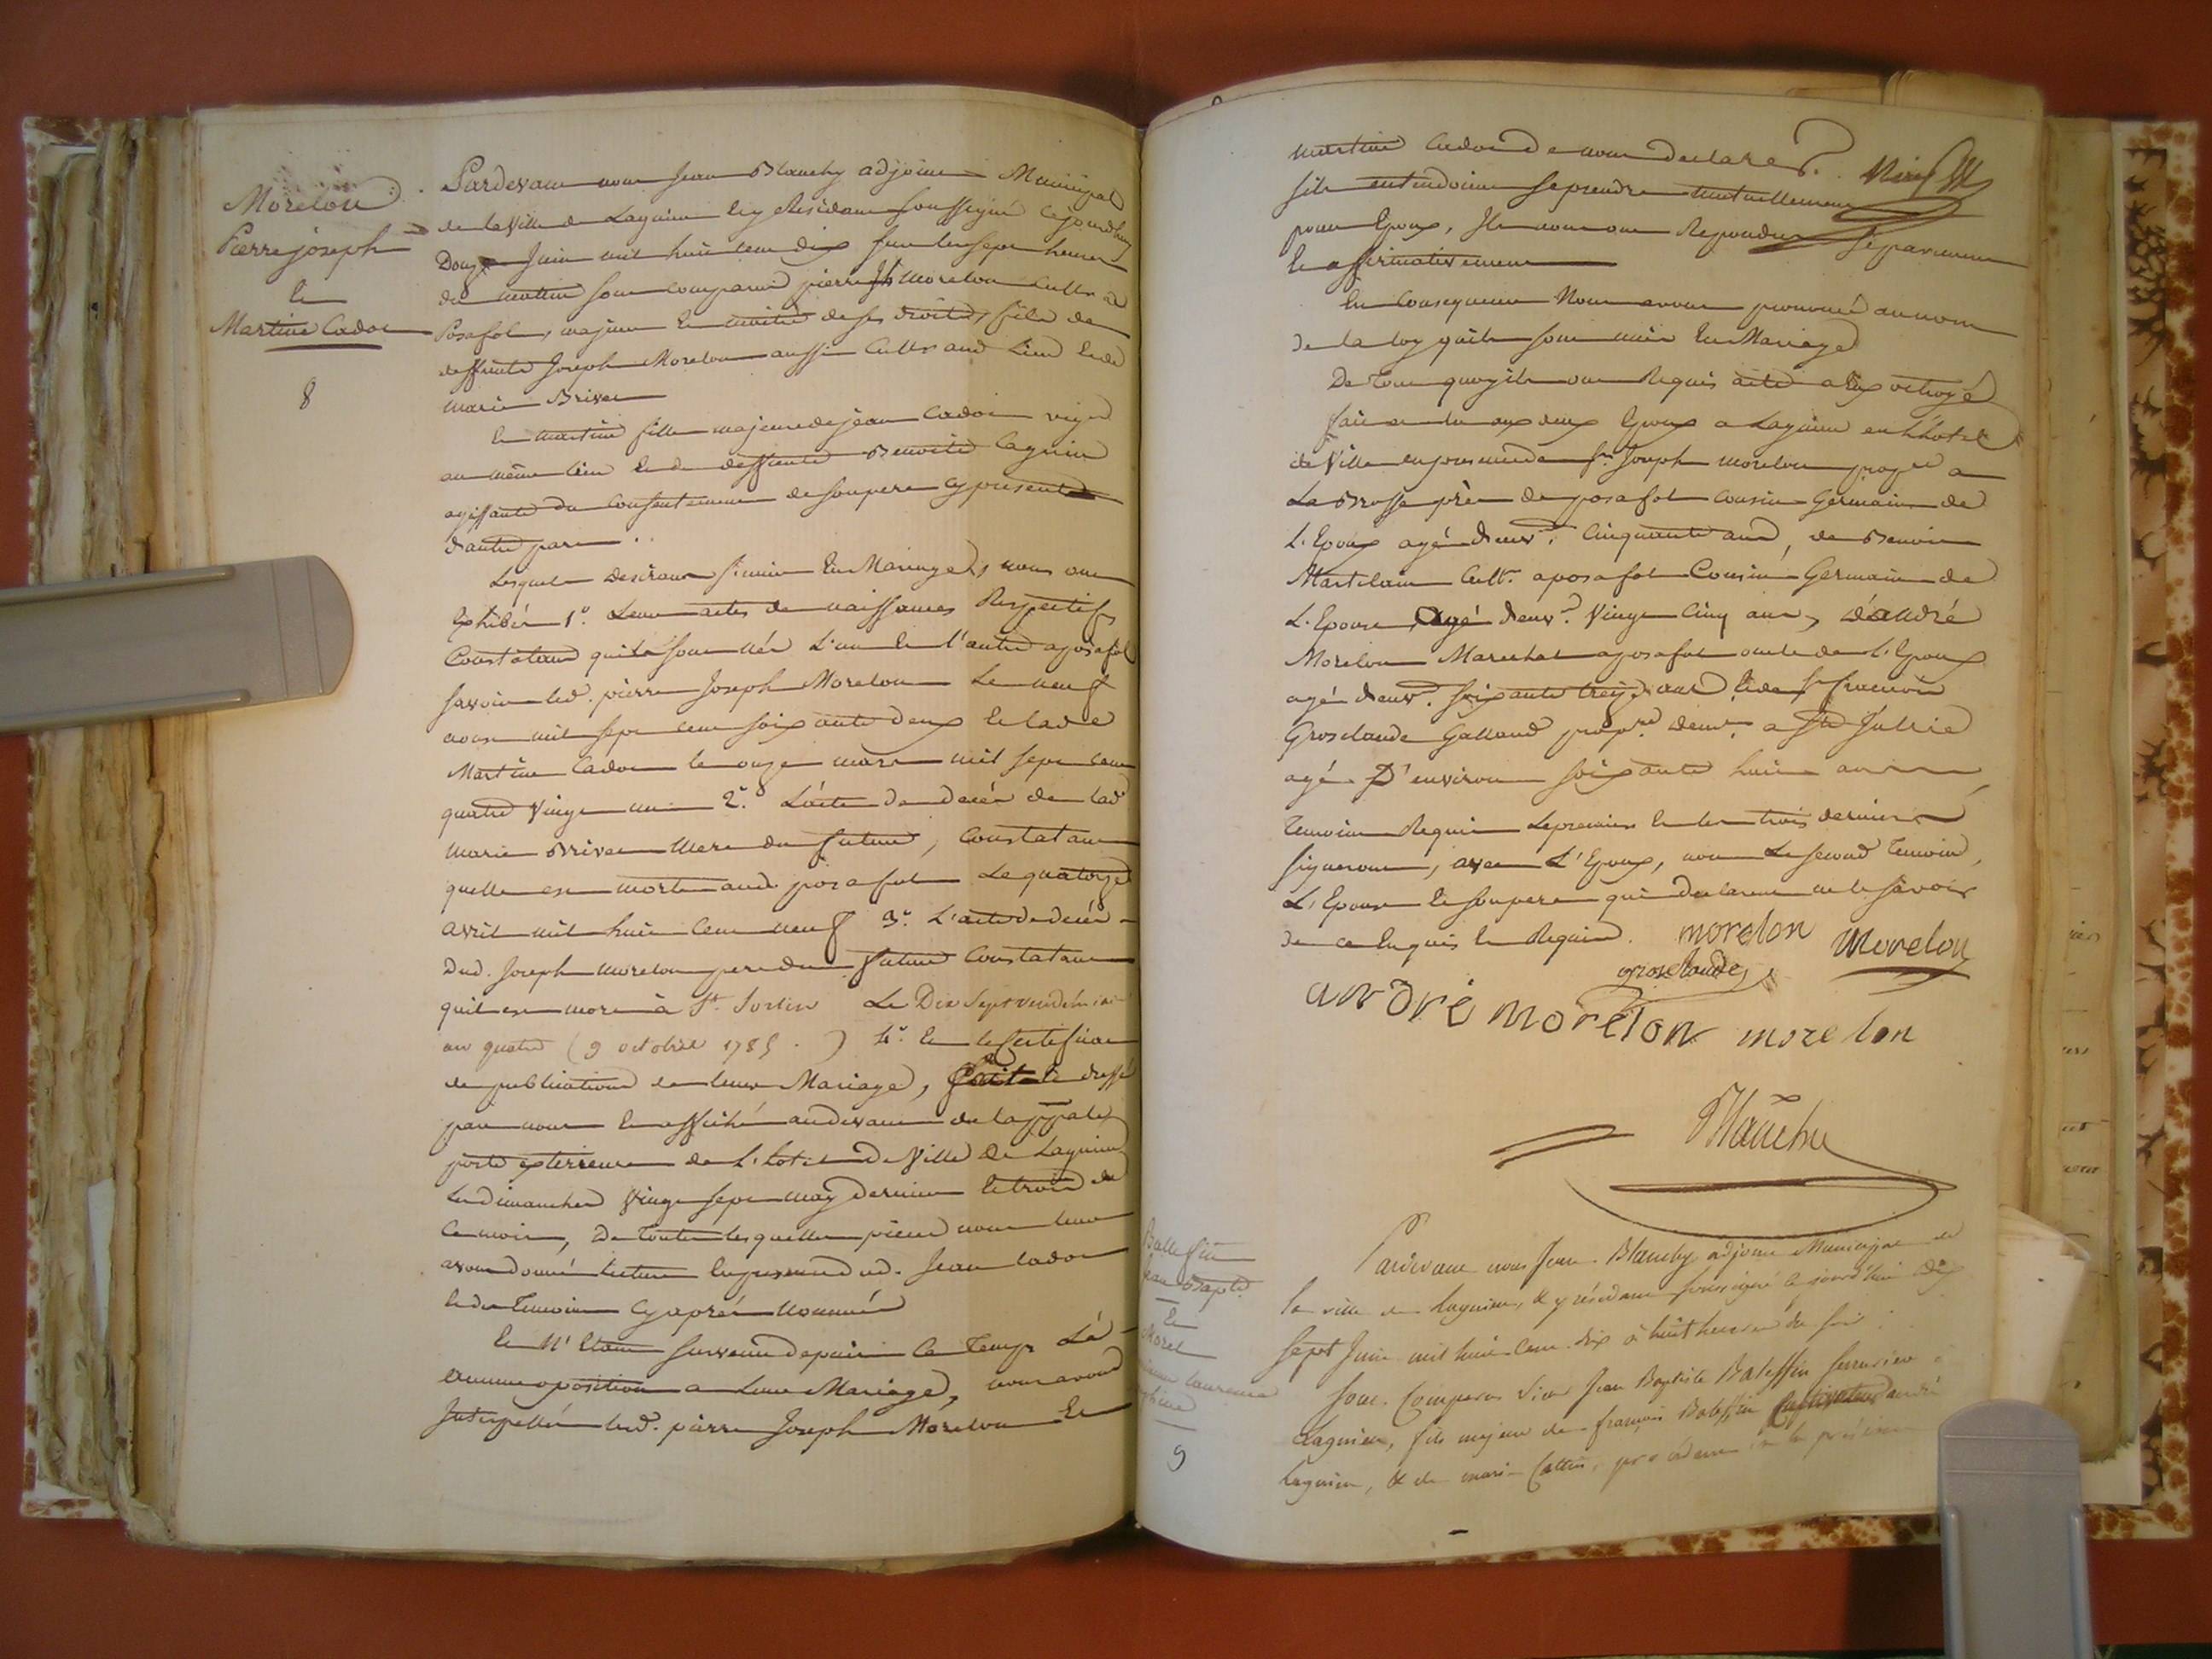 Morelon
Pierre joseph
Et
Martine Cadot
8
Pardevant nous Jean Blanchy adjoint Municipal
de la Ville de Lagnieu Et y Résidant soussigné Cejourdhuy
Douze Juin mil huit cent dix sur les sept heures
du matin sont comparus pierre Jh Morelon Cultr a
Posafol, majeur et maitre de ses droits, fils de
deffunts Joseph Morelon aussi Cultr aud. Lieu Et de
Marie Brivet
Et Martine fille majeure de jean Cadot vigd
au même lieu Et de deffunte Benoite Cagnin
agissante du Consentement de son pere cy present
d'autre part.
Lesquels desirant s'unir En Mariage, nous ont
Exhibés 1° Leurs actes de naissances Respectifs
Constatant qu'ils sont nés L'un Et l'autre a posafol
savoir led. pierre Joseph Morelon Le neuf
aoust mil sept cent soixante deux Et lade
Martine Cadot le onze mars mil sept cent
quatre Vingt un 2° L'acte de decés de lade
Marie Brivet Mere du futur, Constatant
quelle est morte aud. posafol Le quatorze
avril mil huit Cent neuf 3° L'acte de decés
dud. Joseph Morelon pere du futur Constatant
quil est mort à St. Sorlin Le Dix Sept vendémiaire
an quatre (9 octobre 1785.) 4° Et le Certificat
de publications de leur Mariage, fait Et dressé
par nous Et affiché audevant de la ppale
porte exterieure de L'hotel De Ville de Lagnieu
Les dimanches Vingt sept may dernier Et trois de
Ce mois, De Toutes lesquelles pieces nous leur
avons donné lecture En presence dud. Jean Cadot
Et des Temoins Cy après Nommés
Et N'Etant survenu depuis Ce Temps Là
aucune oposition a Leur Mariage, nous avons
Interpellés led. pierre Joseph Morelon Et
martine Cadot De nous declarer
s'ils entendoient se prendre mutuellement
pour Epoux, Ils nous ont Repondus separement
Et affirmativement
En Consequence Nous avons prononcé au nom
de la loy qu'ils sont unis En Mariage
De Tout quoy ils ont Requis acte a Eux octroyé
fait et lu aux deux Epoux a Lagnieu en L'hotel
de Ville en presence de Sr. Joseph Morelon a
La Brosse près de posafol Cousin Germain de
L'Epoux agé d'envn. Cinquante ans, de Benoit
Martelain Cultr. a posafol Cousin Germain de
L'Epouse, agé d'envn. Vingt Cinq ans, d'andré
Morelon Marechal a posafol oncle de L'Epoux
agé d'envn. soixante treize ans Et de Sr francois
Grosclaude Galland propre. demt. a Ste Jullie
agé D'environ soixante huit ans
Temoins Requis Le premier Et les trois derniers
signeront, avec L'Epoux, non Le second Temoin,
L'Epouse Et son pere qui declarent ne le savoir
de ce Enquis Et Requis. morelon Morelon
grosclaude
andré morelon morelon
Blanchy
Ballefin
Jean Bapte
Et
Morel
Laurence
9
Pardevant nous Jean Blanchy adjoint Municipal de
la ville de Lagnieu, & y résidant soussigné Cejourd'hui dix
sept Juin mil huit Cent dix à huit heures du soir
sont Comparus Sieur Jean Baptiste Balleffin serrurier à
Lagnieu, fils majeur de françois Balleffin
Lagnieu, & de marie